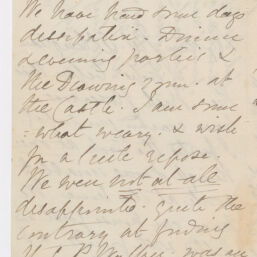 We have had some days
dissipation. Dinner
& evening parties &
the Drawing room at
the Castle. I am some
=what weary. & wish
for a little repose.
We were not at all
disappointed. quite the
contrary at finding
was an